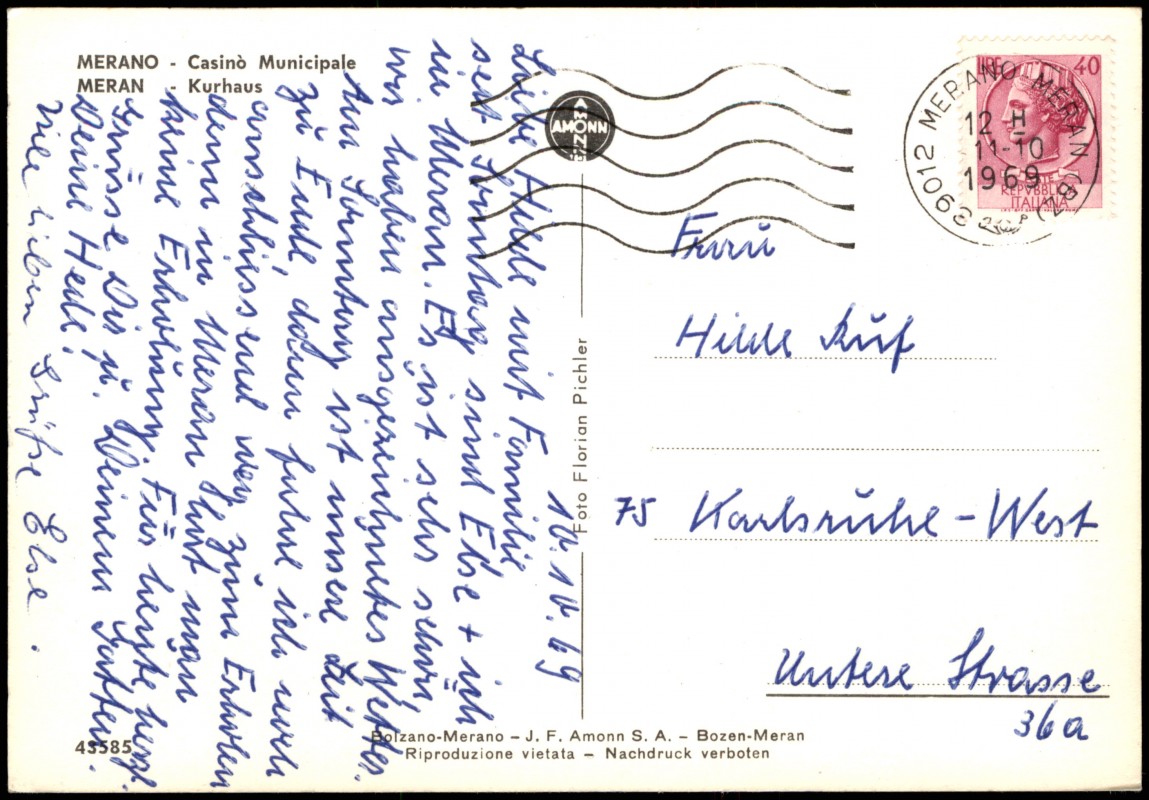 MERANO - Casinò Municipale
MERAN - Kurhaus
10.10.69
Liebe Hilde mit Familie
seit Sonntag sind Else + ich
in Meran. Es ist sehr schön,
wir haben ausgezeichnetes Wetter.
Am Sonntag ist unsere Zeit
zu Ende, dann fahre ich noch
anschliessend weg zum Erholen
denn in Meran hat man
keine Erholung. Für heute herzl.
Grüsse Dir u. Deinem Gatten.
Deine Hede.
Viele lieben Grüße Else.
AMONN
AMONN
Foto Florian Pichler
40
REPVBBLICA
ITALIANA
39012 MERANO MERAN (BZ)
12 H
11-10
1969
Frau
Hilde Ruf
75 Karlsruhe-West
Untere Strasse
36a
43585
Bolzano-Merano – J. F. Amonn S. A. – Bozen-Meran
Riproduzione vietata – Nachdruck verboten